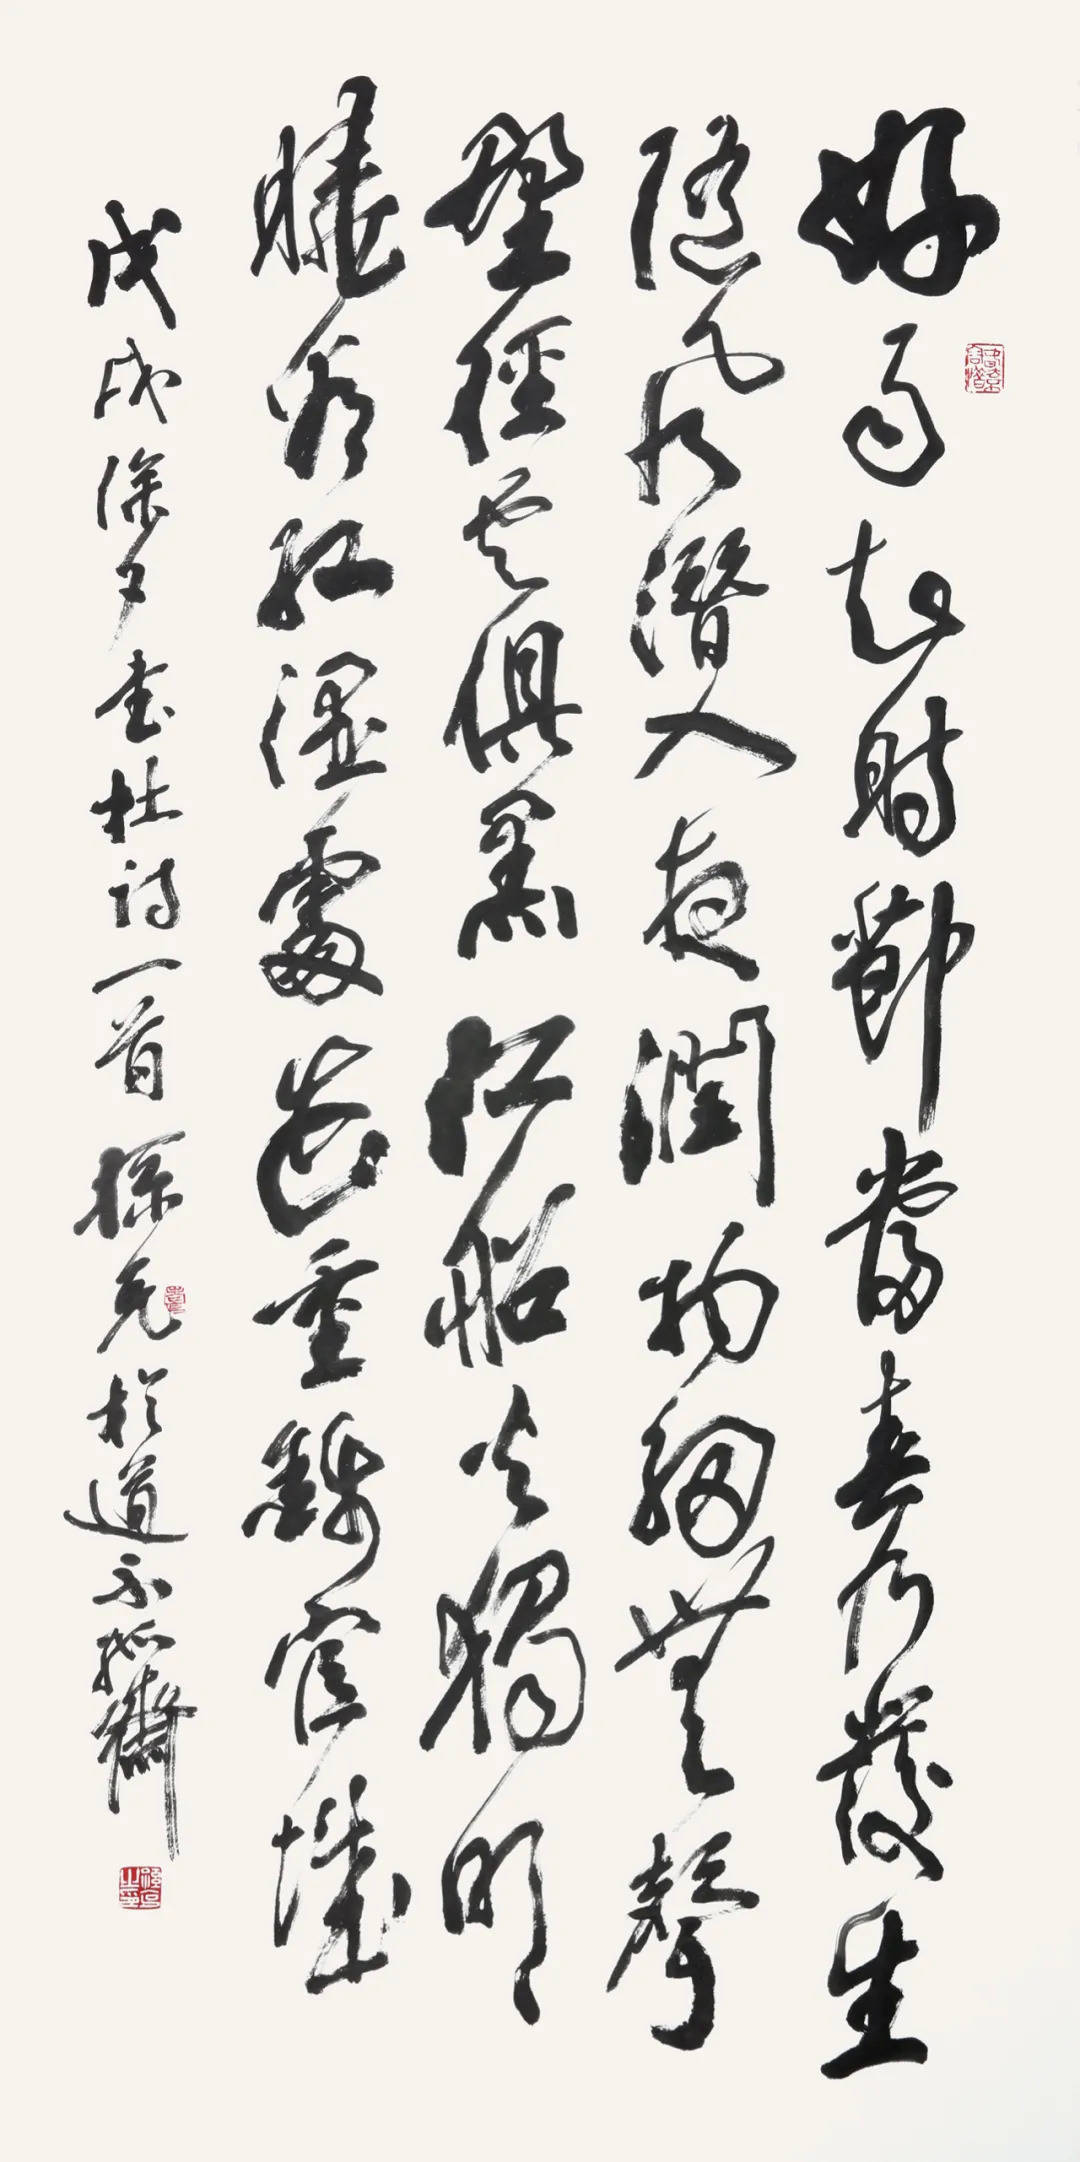 好雨知時節當春乃發生
隨風潛入夜潤物細無聲
野徑雲俱黑江船火獨明
曉看紅濕處花重錦官城
戊戌除夕書杜詩一首孫克於道不孤齋